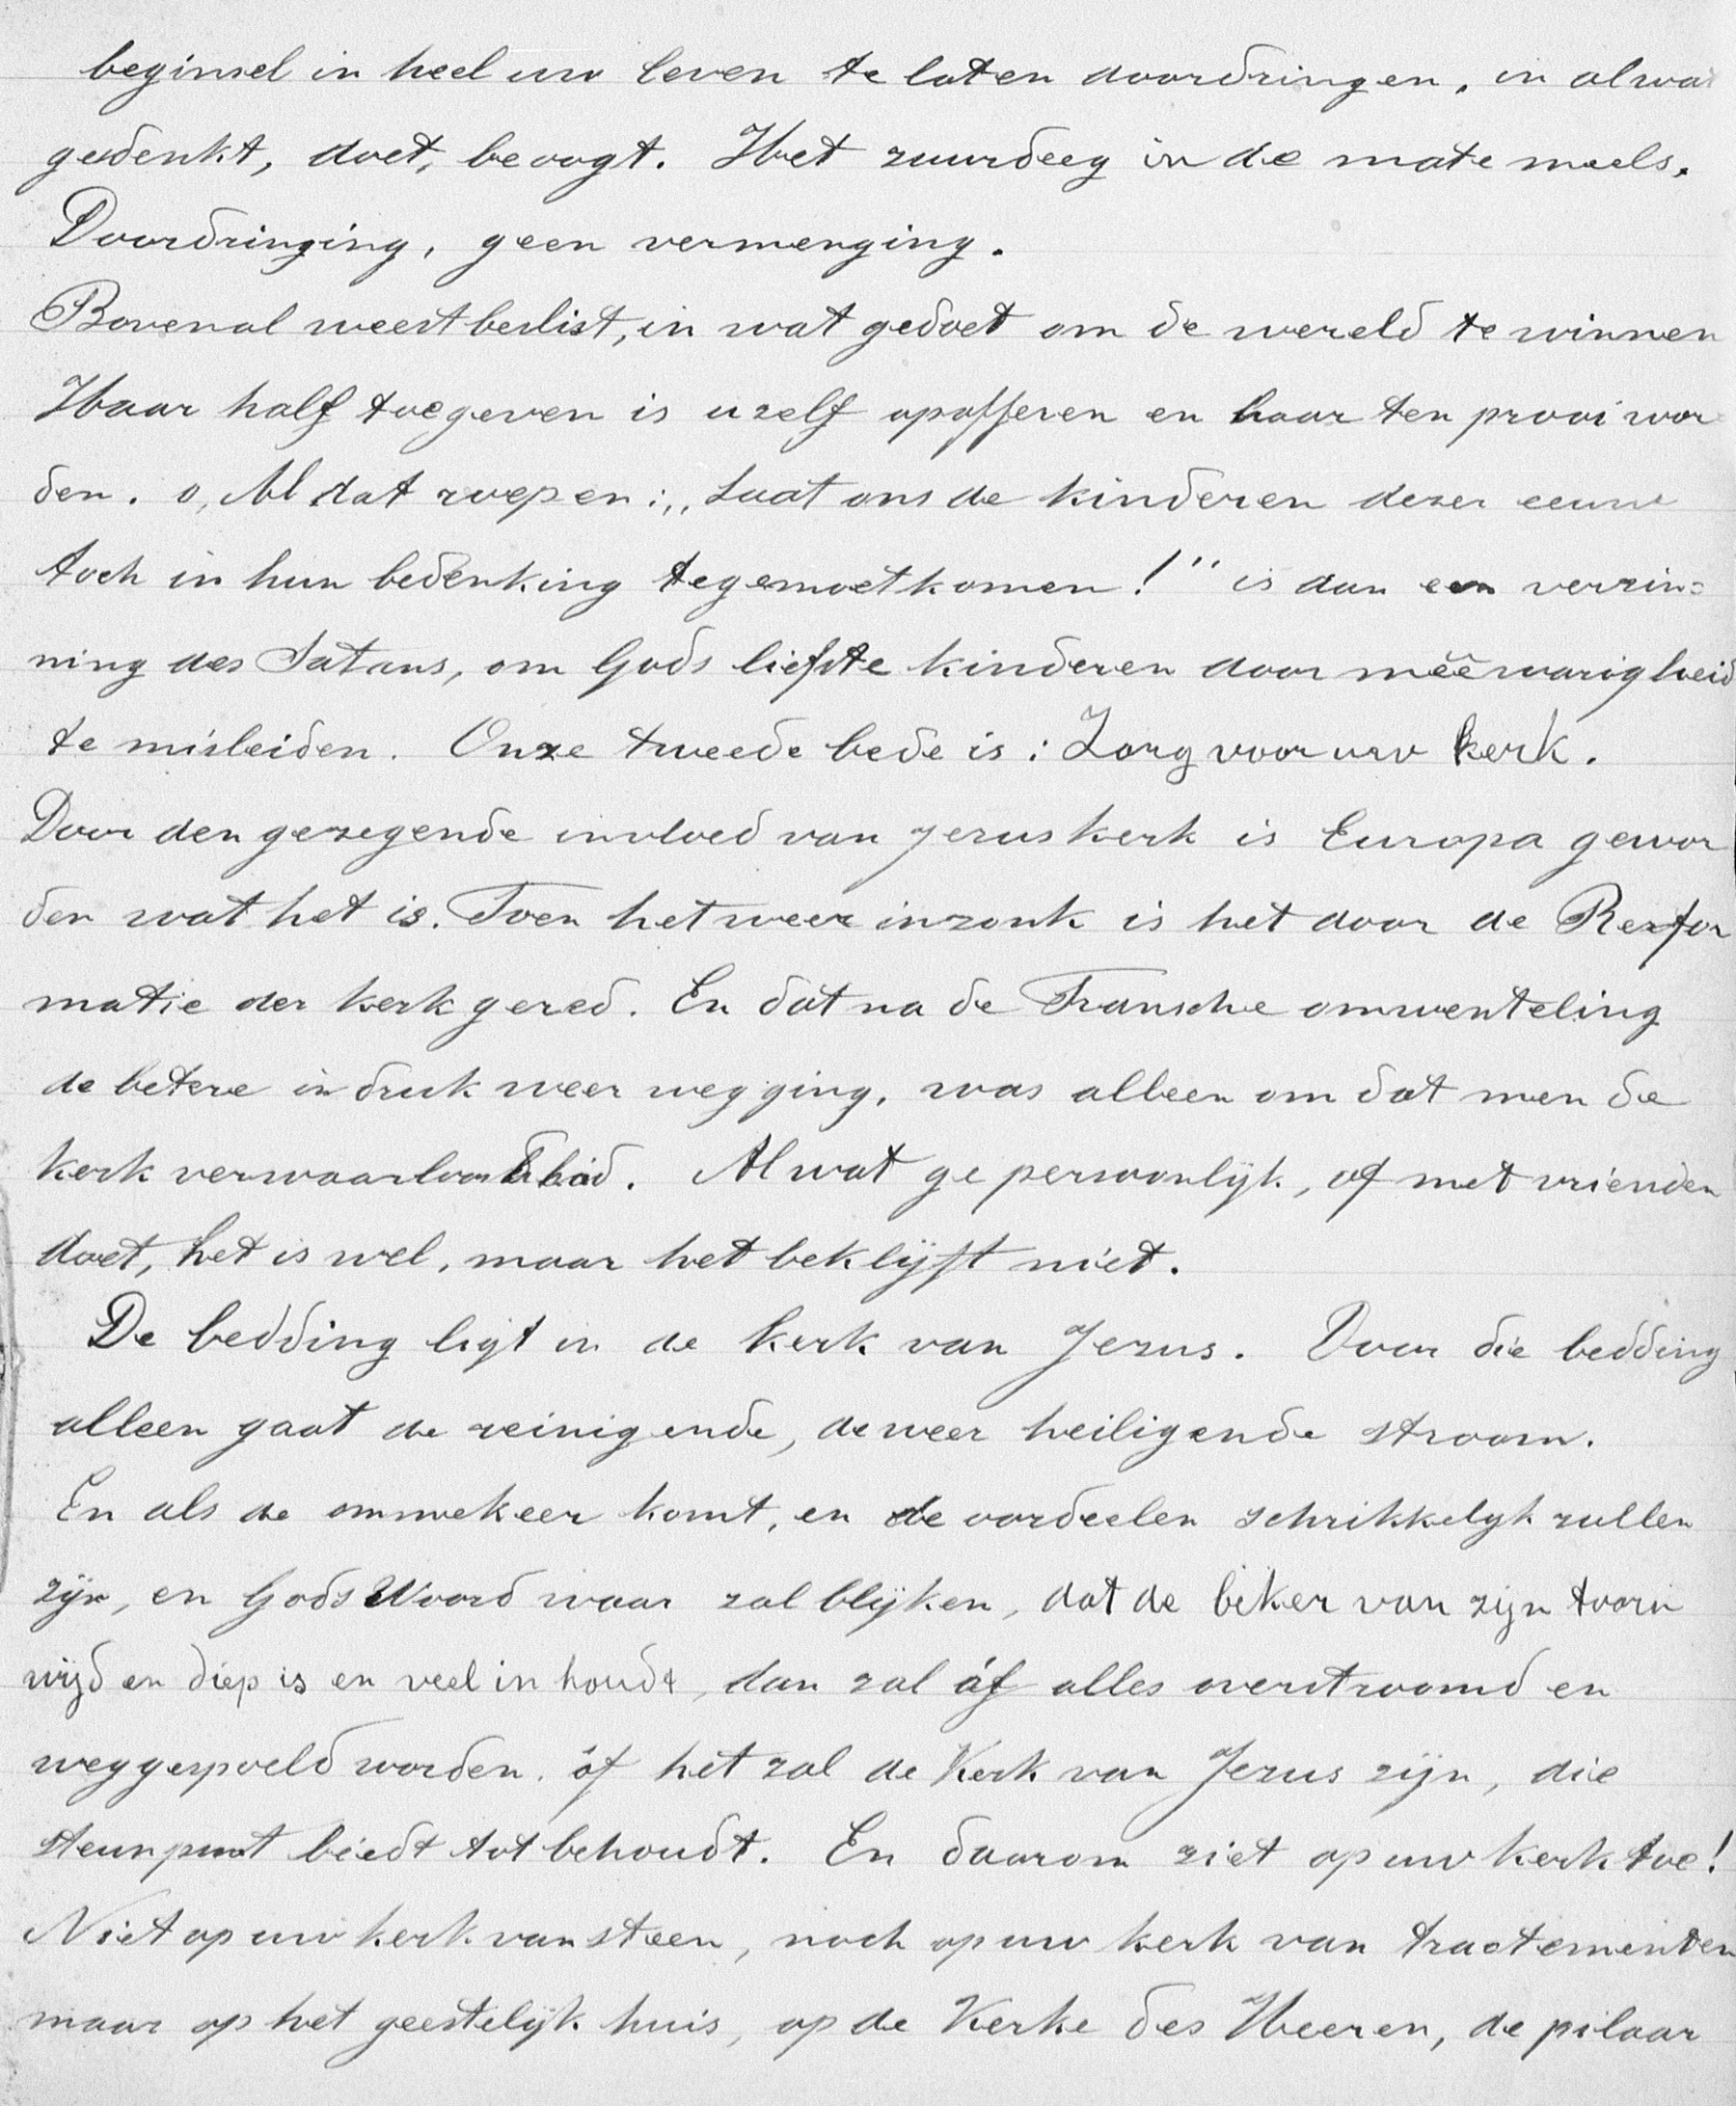 beginsel in heel uw leven te laten doordringen, in alwat
gedenkt, doet, beoogt. Het zuurdeeg in de mate meels.
Doordringing, geen vermenging.
Bovenal weest beslist, in wat gedoet om de wereld te winnen
Haar half toegeven is uzelf opofferen en haar ten prooi wor
den. o, Al dat roepen: „Laat ons de kinderen dezer eeuw
toch in hun bedenking tegemoetkomen!” is dan een verzin=
ning des Satans, om Gods liefste kinderen door mêêwarigheid
te misleiden. Onze tweede bede is: Zorg voor uw kerk.
Door den gezegende invloed van Jezus kerk is Europa gewor
den wat het is. Toen het weer inzonk is het door de Refor
matie der kerk gered. En dat na de Fransche omwenteling
de betere indruk weer wegging, was alleen omdat men de
kerk verwaarloosd had. Al wat ge persoonlijk, of met vrienden
doet, het is wel, maar het beklijft niet.
De bedding ligt in de kerk van Jezus. Door die bedding
alleen gaat de reinigende, de weer heiligende stroom.
En als de ommekeer komt, en de oordeelen schrikkelijk zullen
zijn, en Gods Woord waar zal blijken, dat de beker van zijn toorn
wijd en diep is en veel in houdt, dan zal óf alles overstroomd en
weggespoeld worden. óf het zal de Kerk van Jezus zijn, die
steunpunt biedt tot behoudt. En daarom ziet op uw kerk toe!
Niet op uw kerk van steen, noch op uw kerk van tractementen
maar op het geestelijk huis, op de Kerke des Heeren, de pilaar